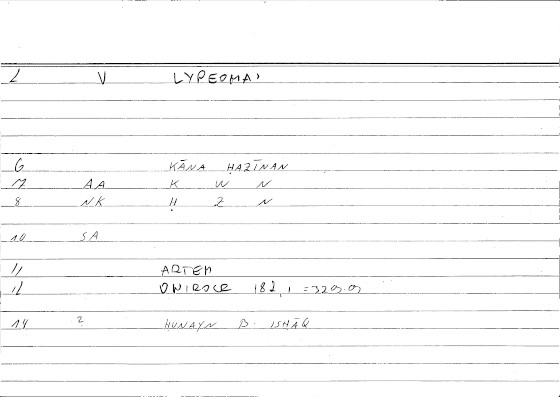 2 V LYPEOMAI
6 KĀNA ḤAZĪNAN
7 AA K W N
8 NK Ḥ Z N
10 SA
11 ARTEM
12 ONIROCR 182, 1 = 329.9
14 2 ḤUNAYN B. ISḤĀQ